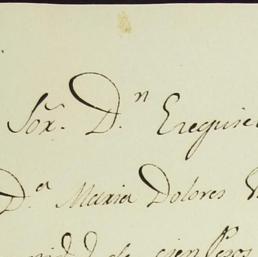 Sõr. D.ⁿ Ezequiel
D.ª Maria Dolores
de cien pesos